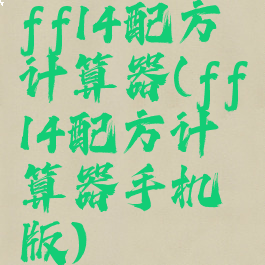 ff14配方
计算器(ff
14配方计
算器手机
版)